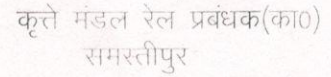 कृत्ते मंडल रेल प्रबंधक(का0)
समस्तीपुर